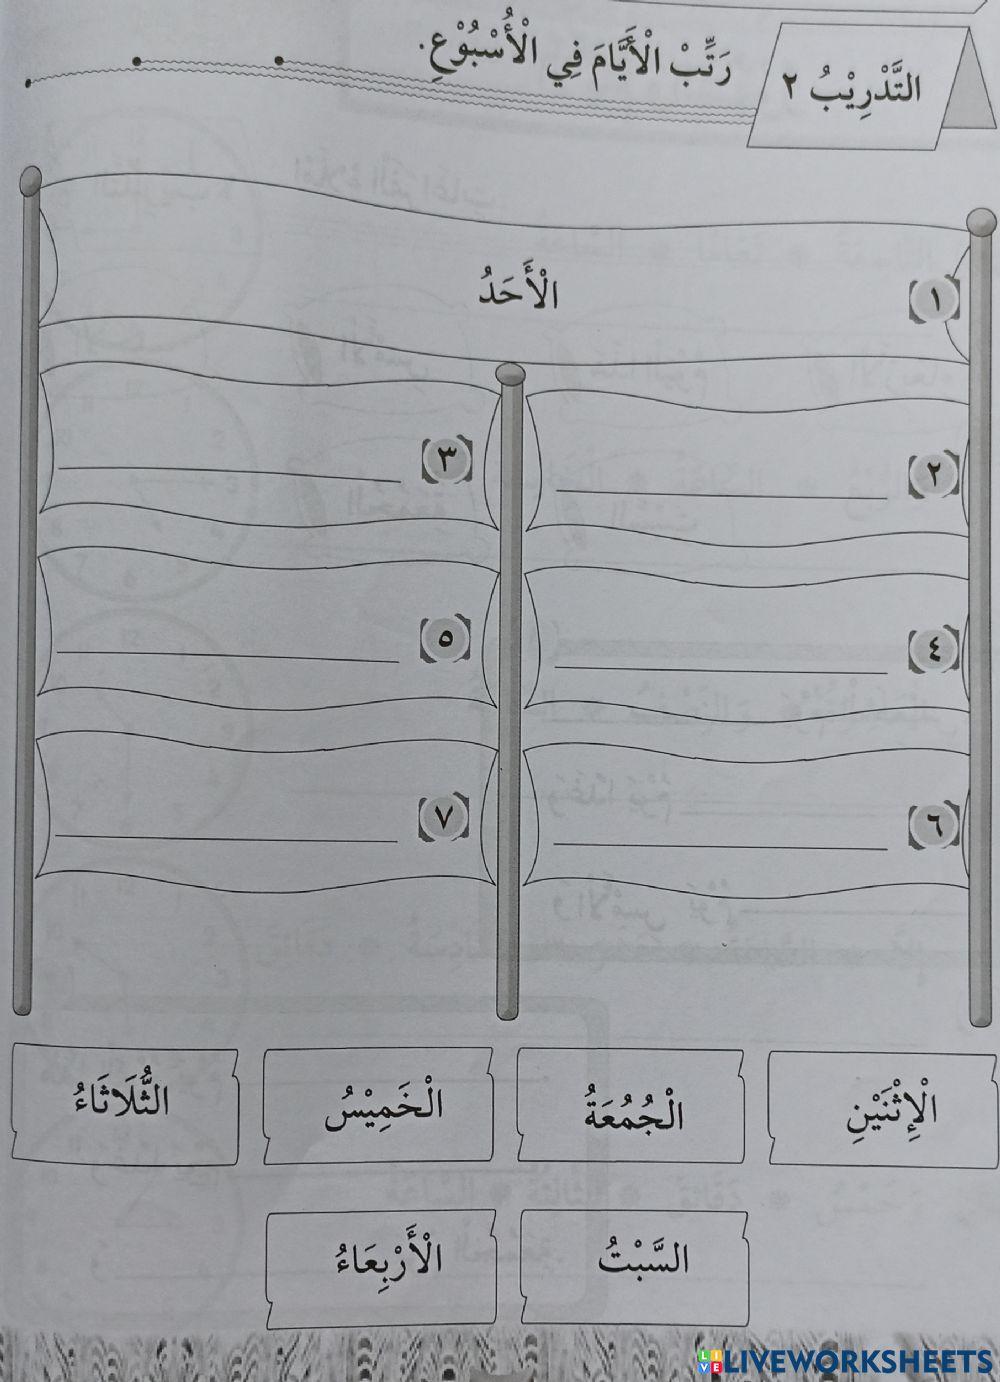 التَّدْرِيْبُ ٢
رَتِّبْ الْأَيَّامَ فِي الْأُسْبُوْعِ.
١
الْأَحَدُ
٢
٣
٤
٥
٦
٧
الْإِثْنَيْنِ
الْجُمُعَةُ
الْخَمِيْسُ
الثُّلَاثَاءُ
السَّبْتُ
الْأَرْبِعَاءُ
LIVEWORKSHEETS